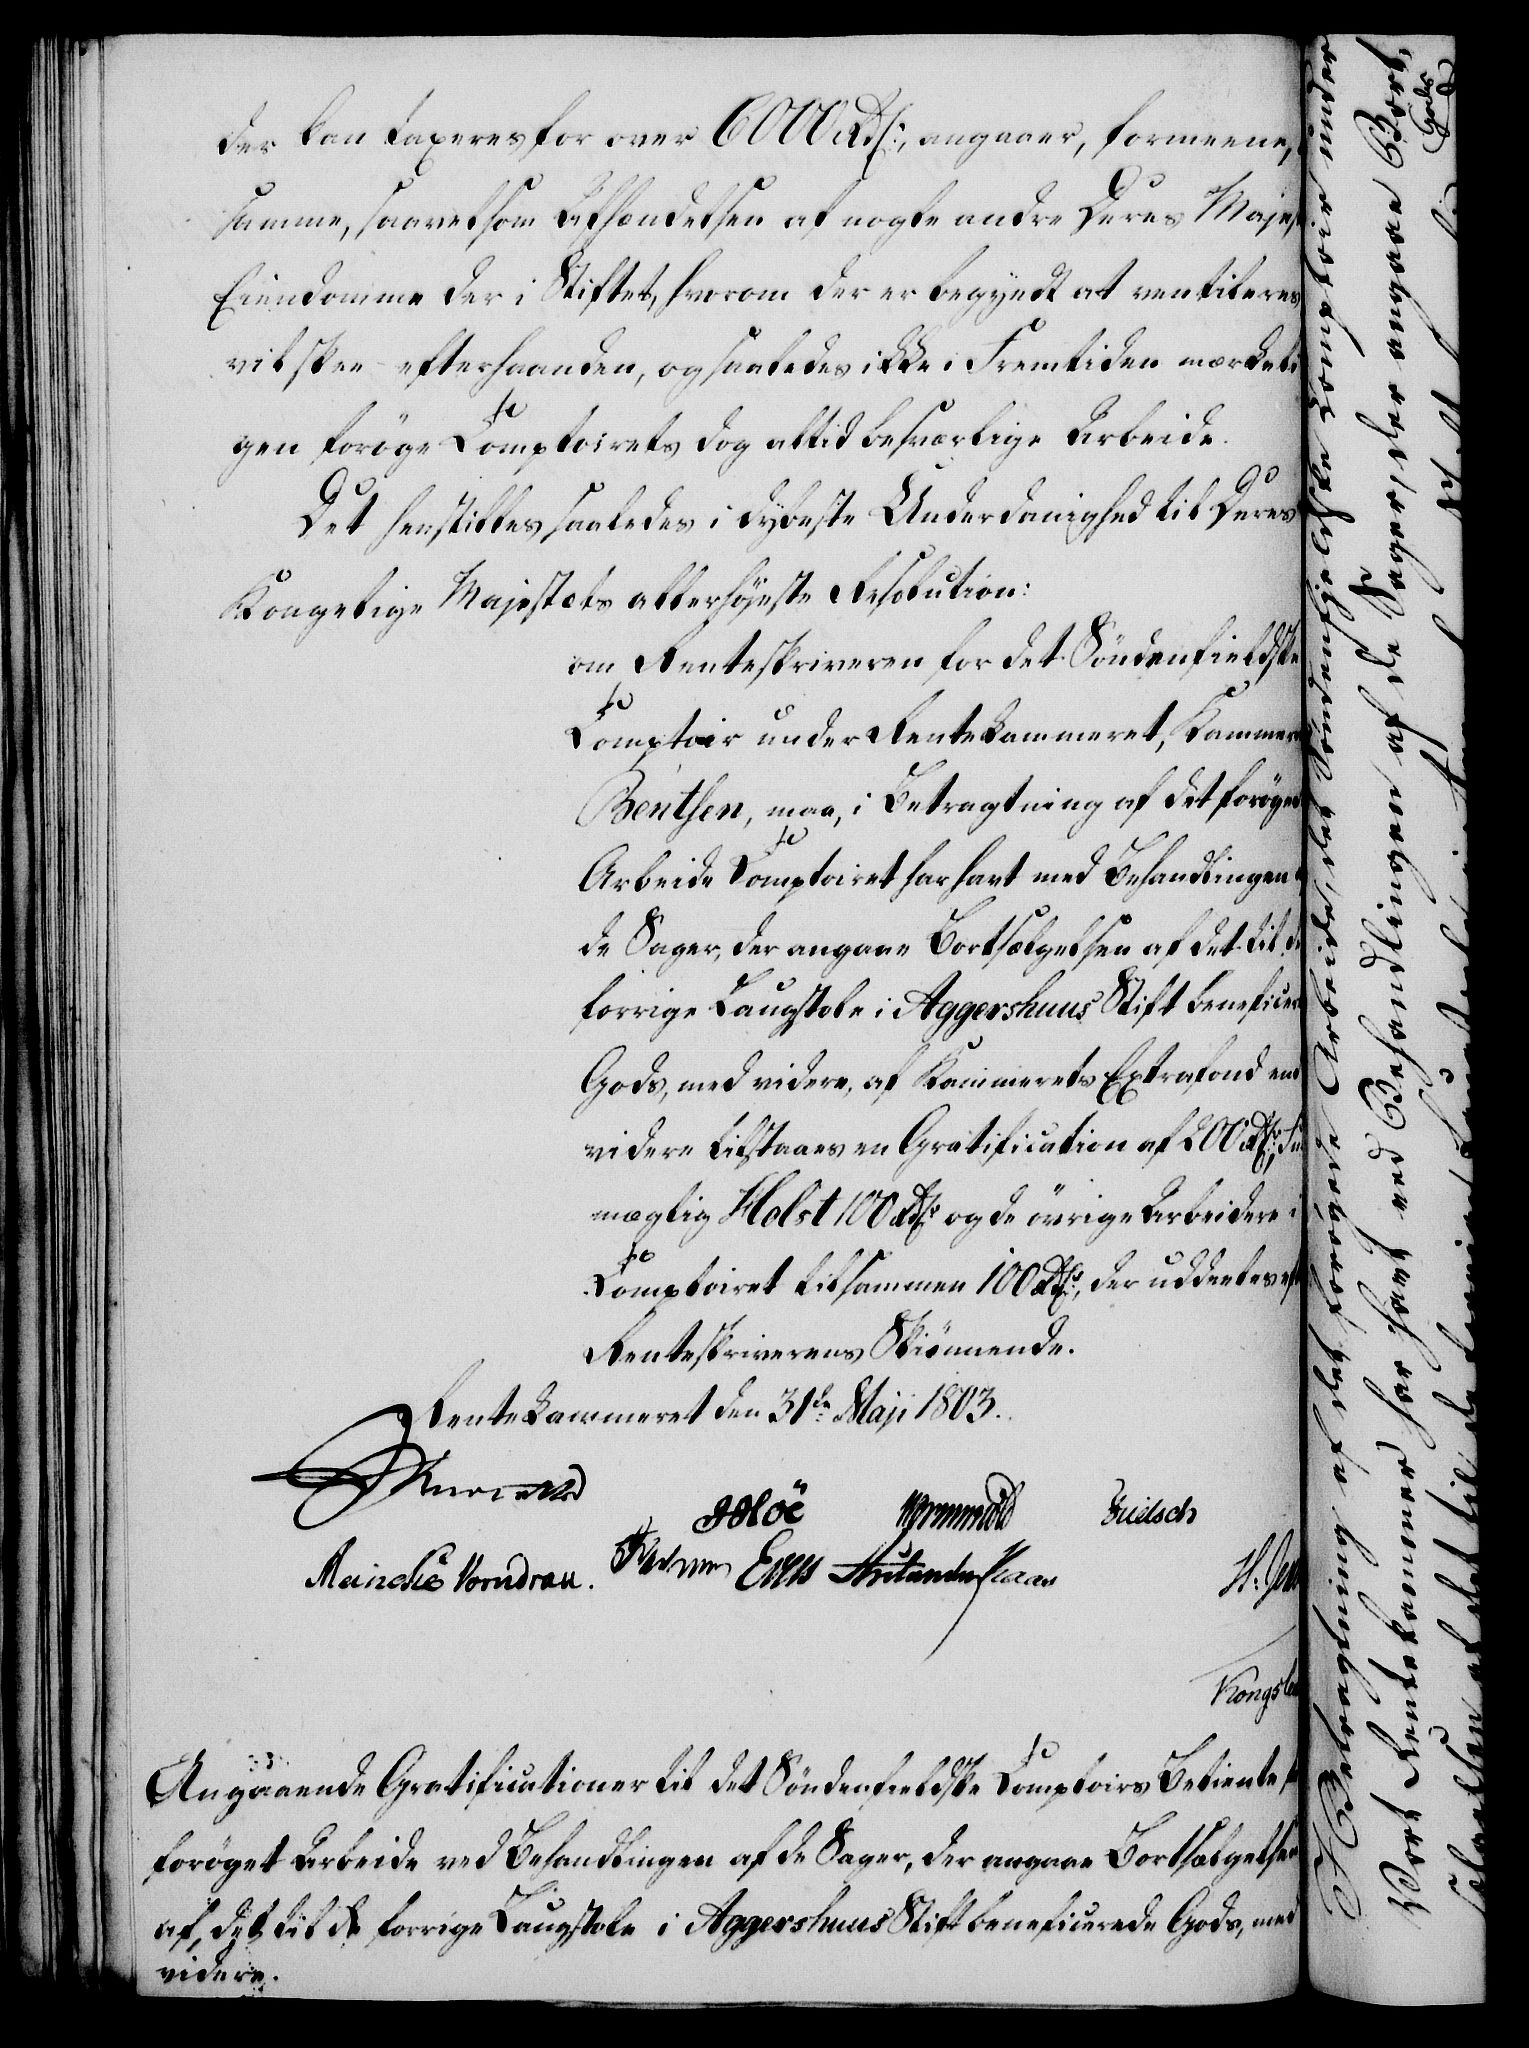 der kan taxeres for over 6000 Rdl:, angaaer, formeene,
samme, saavelsom Afhændelsen af nogle andre Deres Majest
Eiendomme der i Stiftet, hvorom der er begyndt at ventileres
vil skee efterhaanden, og saaledes ikke i Fremtiden mærkeli
gen forøge Comptoirets dog altid besværlige Arbeide.
Det henstilles saaledes i dybeste Underdanighed til Deres
Kongelige Majestæts allerhøjeste Resolution:
om Renteskriveren for det Søndenfieldske
Comptoir under Rentekammeret, Kammer
Benthen, maa, i Betragtning af det forøge
Arbeide Comptoiret har havt med Behandlingen a
de Sager, der angaae Bortsælgelsen af det til de
forrige Laugstole i Aggershuus Stift beneficere
Gods, med videre, af Kammerets Extrafond end
videre tilstaaes en Gratification af 200 Rdl:, Fu
mægtig Holst 100 Rdl: og de øvrige Arbeidere i
Comptoiret tilsammen 100 Rdl:, der uddeeles eft
Renteskriverens Skiønnende.
Rentekammeret den 31de Maji 1803.
Hoë Wormskiold Fridsch
Meinche Vorndran.
H: Jen
Kongsb
Angaaende Gratificationer til det Søndenfieldske Comptoirs Betiente f
forøget Arbeide ved Behandlingen af de Sager, der angaae Bortsælgelsen
af det til de forrige Laugstole i Aggershuus Stift beneficerede Gods, med
videre.
I Betragtning af det forøgede Arbeide, det Søndenfieldske Comptoir under
Vort Rentekammer har havt ved Behandlingen af de Sager, der angaae Bort,